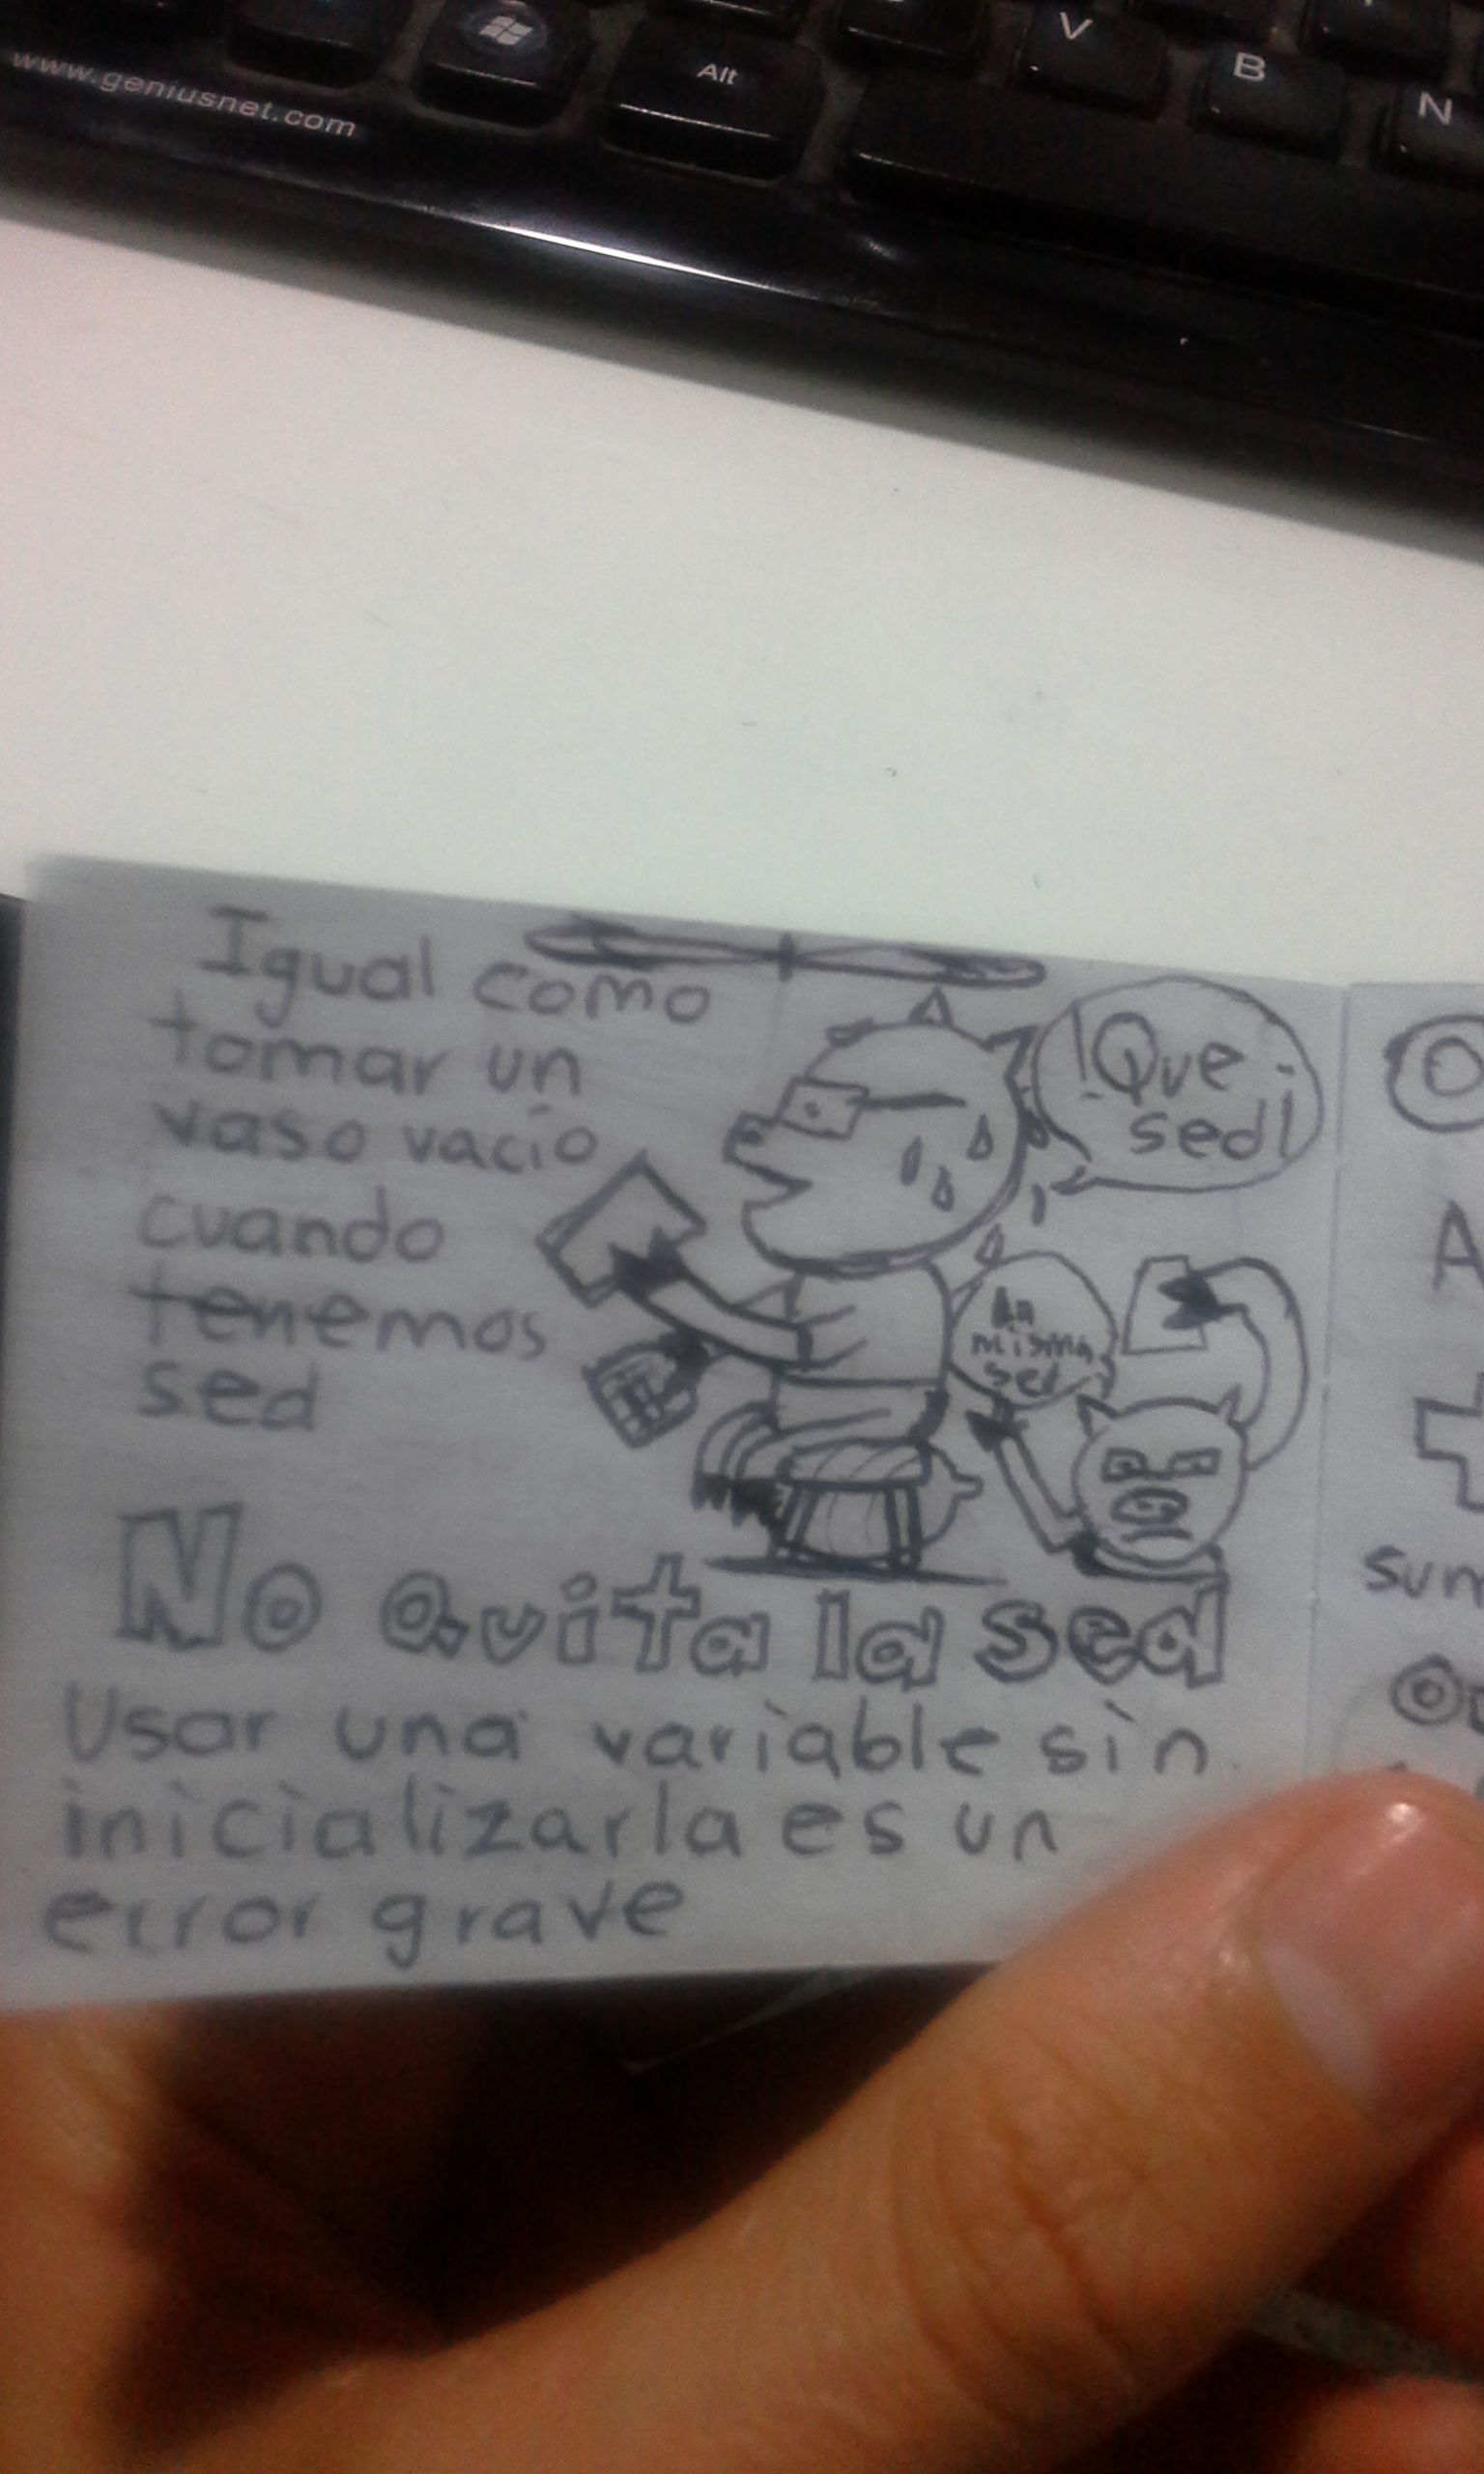 www.geniusnet.com
Alt
V
B
N
Igual como
tomar un
vaso vacío
cuando
tenemos
sed
¡Que
sed!
La
misma
sed
No quita la sed
Usar una variable sin
inicializarla es un
error grave
O
A
sum